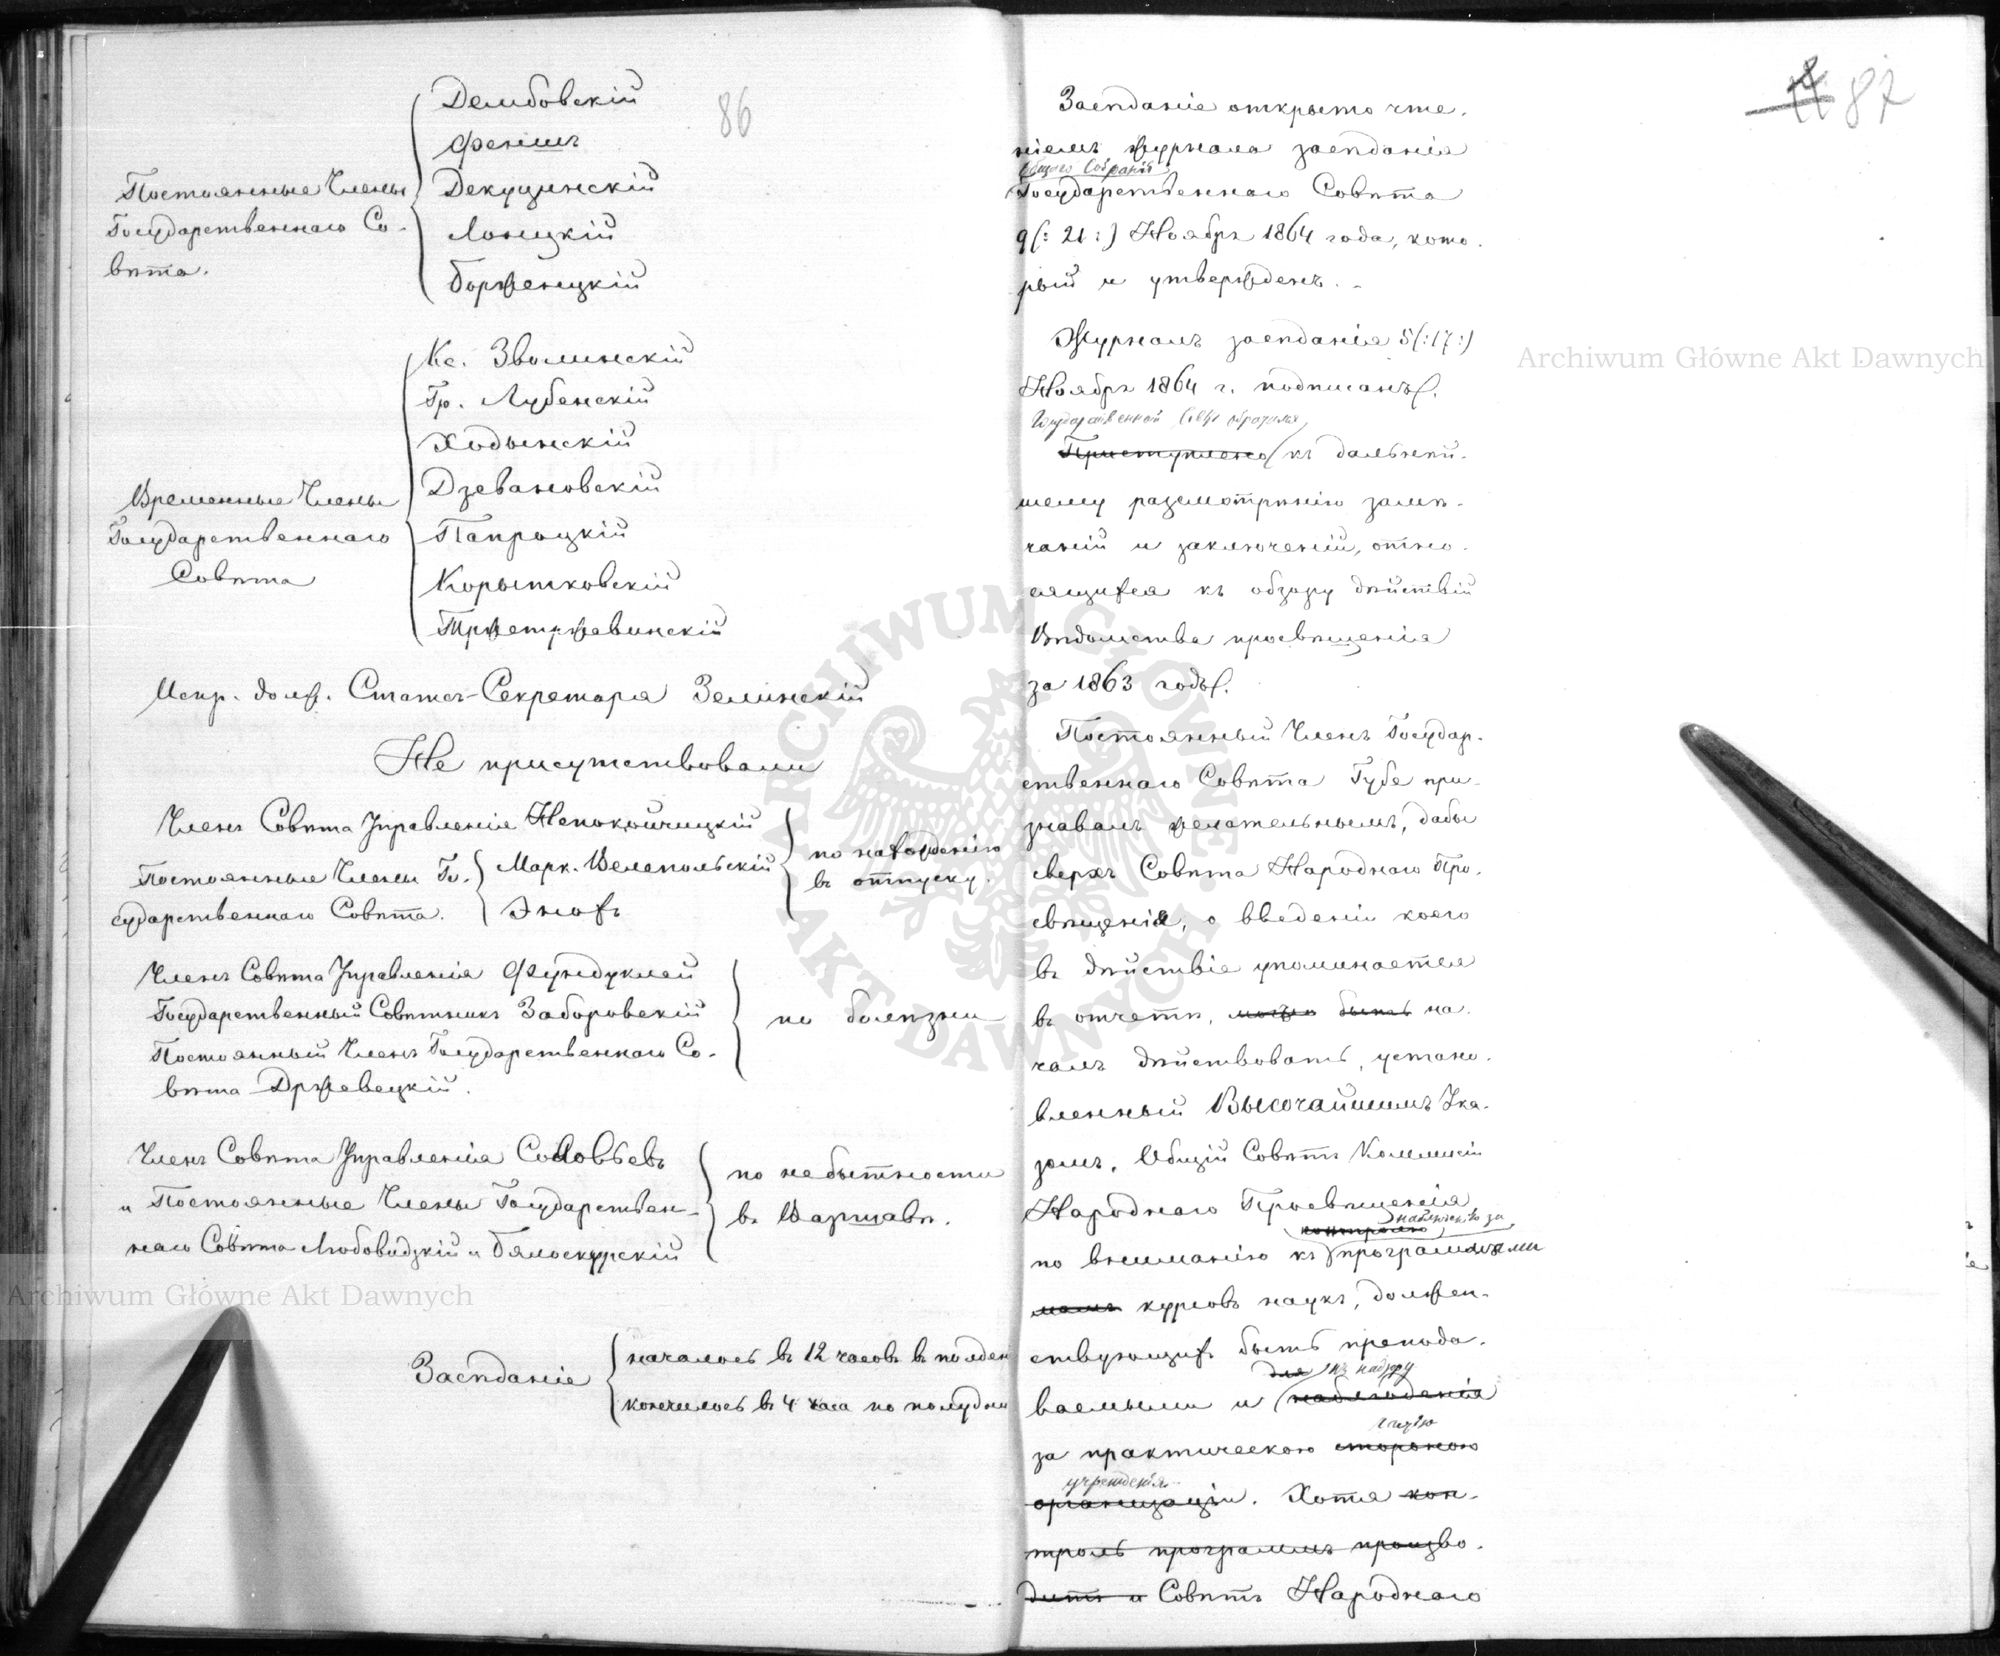 86
Постоянные Члены
Государственнаго Со-
вѣта.
Дембовскій
Феншъ
Декуцинскій
Лонцкій
Борженцкій
Временные Члены
Государственнаго
Совѣта
Кс. Зволинскій
Гр. Лубенскій
Ходынскій
Дзевановскій
Папроцкій
Корытковскій
Тржетржевинскій
Испр. долж. Статсъ-Секретаря Зелинскій
Не присутствовали
Членъ Совѣта Управленія Непокойчицкій
Постоянные Члены Го-
сударственнаго Совѣта.
Марк. Велепольскій
Энохъ
по нахожденію
въ отпуску.
Членъ Совѣта Управленія Фундуклей
Государственный Совѣтникъ Заборовскій
Постоянный Членъ Государственнаго Со-
вѣта Држевецкій.
по болѣзни
Членъ Совѣта Управленія Соловьевъ
и Постоянные Члены Государствен-
наго Совѣта Любовидзкій и Бялоскурскій
по небытности
въ Варшавѣ.
Засѣданіе
началось въ 12 часовъ въ полдень
кончилось въ 4 часа по полудни
87
Засѣданіе открыто чте-
ніемъ журнала засѣданія
Общаго Собранія
Государственнаго Совѣта
9(: 21 :) Ноября 1864 года, кото-
рый и утвержденъ. -
Журналъ засѣданія 5(:17:)
Ноября 1864 г. подписанъ.
Государственный Совѣтъ обратился
Приступлено къ дальнѣй-
шему разсмотрѣнію замѣ-
чаній и заключеній, отно-
сящихся къ обзору дѣйствій
Вѣдомства просвѣщенія
за 1863 годъ.
Постоянный Членъ Государ-
ственнаго Совѣта Губе при-
знавалъ желательнымъ, дабы
сверхъ Совѣта Народнаго Про-
свѣщенія, о введеніи коего
въ дѣйствіе упоминается
въ отчетѣ, могъ быть на-
чалъ дѣйствовать, устано-
вленный Высочайшимъ Ука-
зомъ, Общій Совѣтъ Коммисіи
Народнаго Просвѣщенія
контролю наблюденію за
по вниманію къ программами
мамъ курсовъ наукъ, должен-
ствующихъ быть препода-
для къ надзору
ваемыми и наблюденія
за практическою стороною
учрежденія
организаціи. Хотя кон-
троль программъ произво-
дитъ и Совѣтъ Народнаго
Archiwum Główne Akt Dawnych
Archiwum Główne Akt Dawnych
ARCHIWUM GŁÓWNE AKT DAWNYCH